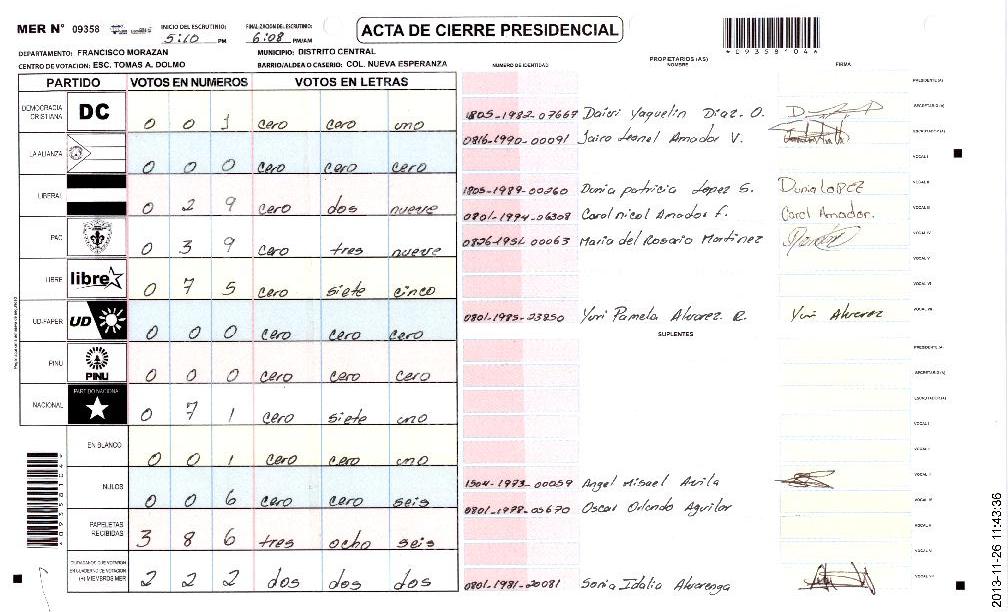 MER N° 09358
INICIO DEL ESCRUTINIO: 5:10 PM
FINALIZACION DEL ESCRUTINIO: 6:08 PM/AM
ACTA DE CIERRE PRESIDENCIAL
*093581046*
DEPARTAMENTO: FRANCISCO MORAZAN
MUNICIPIO: DISTRITO CENTRAL
CENTRO DE VOTACION: ESC. TOMAS A. DOLMO
BARRIO/ALDEA O CASERIO: COL. NUEVA ESPERANZA
PARTIDO VOTOS EN NUMEROS VOTOS EN LETRAS
DEMOCRACIA CRISTIANA DC 0 0 1 cero cero uno
LA ALIANZA 0 0 0 cero cero cero
LIBERAL 0 2 9 cero dos nueve
PAC 0 3 9 cero tres nueve
LIBRE libre 0 7 5 cero siete cinco
UD-FAPER UD 0 0 0 cero cero cero
PINU PINU 0 0 0 cero cero cero
NACIONAL PARTIDO NACIONAL 0 7 1 cero siete uno
EN BLANCO 0 0 1 cero cero uno
NULOS 0 0 6 cero cero seis
PAPELETAS RECIBIDAS 3 8 6 tres ocho seis
CIUDADANOS QUE VOTARON
EN CUADERNO DE VOTACION
(+) MIEMBROS MER 2 2 2 dos dos dos
PROPIETARIOS (AS)
NUMERO DE IDENTIDAD NOMBRE FIRMA
PRESIDENTE (A)
1805-1982-07667 Daisi Yaquelin Diaz. O. SECRETARIO (A)
0816-1990-00091 Jairo Leanel Amador V. ESCRUTADOR (A)
VOCAL I
1805-1989-00260 Dunia patricia Lopez S. Dunia LOPEZ VOCAL II
0801-1994-06308 Carol nicol Amador F. Carol Amador. VOCAL III
0826-1951-00063 Maria del Rosario Martinez VOCAL IV
VOCAL V
VOCAL VI
0801-1985-23850 Yuri Pamela Alvarez R. Yuri Alvarez VOCAL VII
SUPLENTES
PRESIDENTE (A)
SECRETARIO (A)
ESCRUTADOR (A)
VOCAL I
1504-1973-00059 Angel Misael Avila VOCAL II
0801-1978-05670 Oscar Orlando Aguilar VOCAL III
VOCAL V
VOCAL VI
0801-1981-20081 Sonia Idalia Alvarenga VOCAL VII
2013-11-26 11:43:36